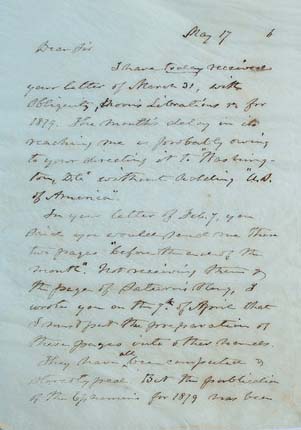 May 17 6
Dear Sir
I have today received
your letter of March 31, with
Obliquity, Moon's Librations &c for
1879. The month's delay in its
reaching me is probably owing
to your directing it to "Washing-
ton, D.C." without adding "U.S.
of America".
In your letter of Feb. 7, you
said you would send me these
two pages "before the end of the
month". Not receiving them &
the page of Saturn's Ring, I
wrote you on the 7th of April that
I must put the preparation of
these pages into other hands.
They have all been computed &
stereotyped. But the publication
of the Ephemeris for 1879 has been